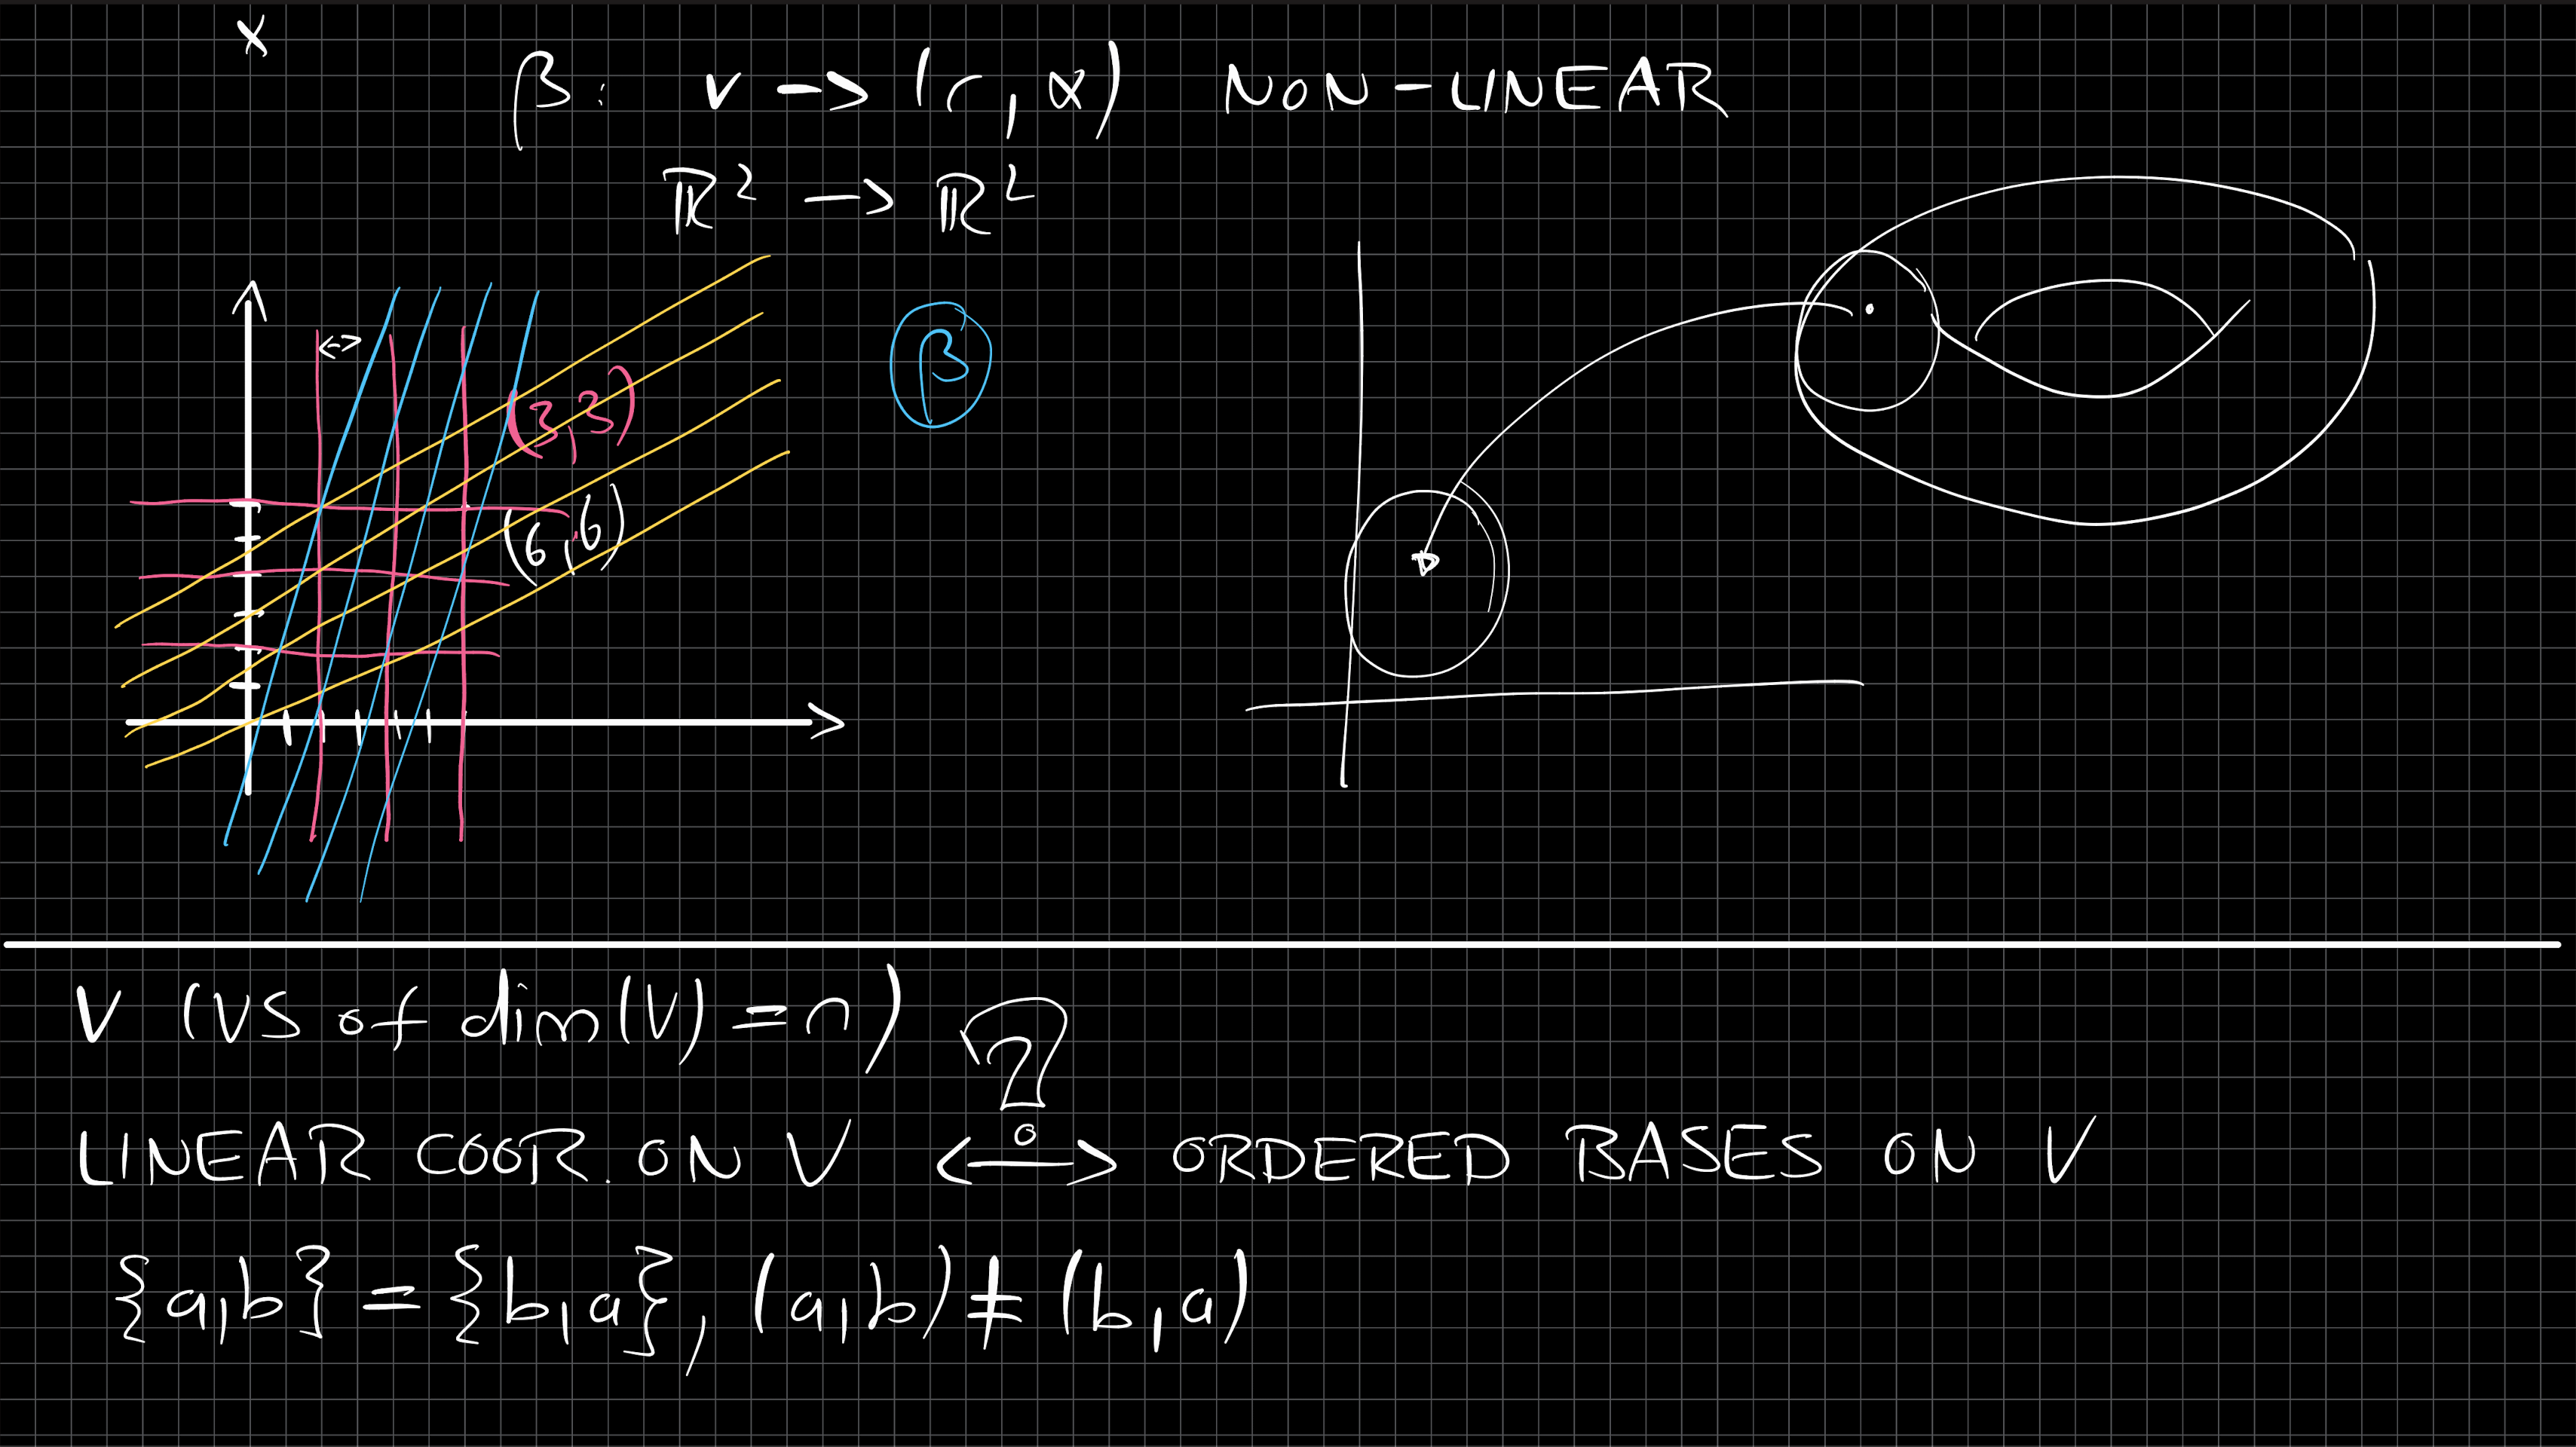 x
β: v → (r, α) NON-LINEAR
ℝ² → ℝ²
(3,3)
β
(6,6)
V (VS of dim(V) = n) ?
LINEAR COOR. ON V ⟷ ORDERED BASES ON V
{a,b} = {b,a}, (a,b) ≠ (b,a)